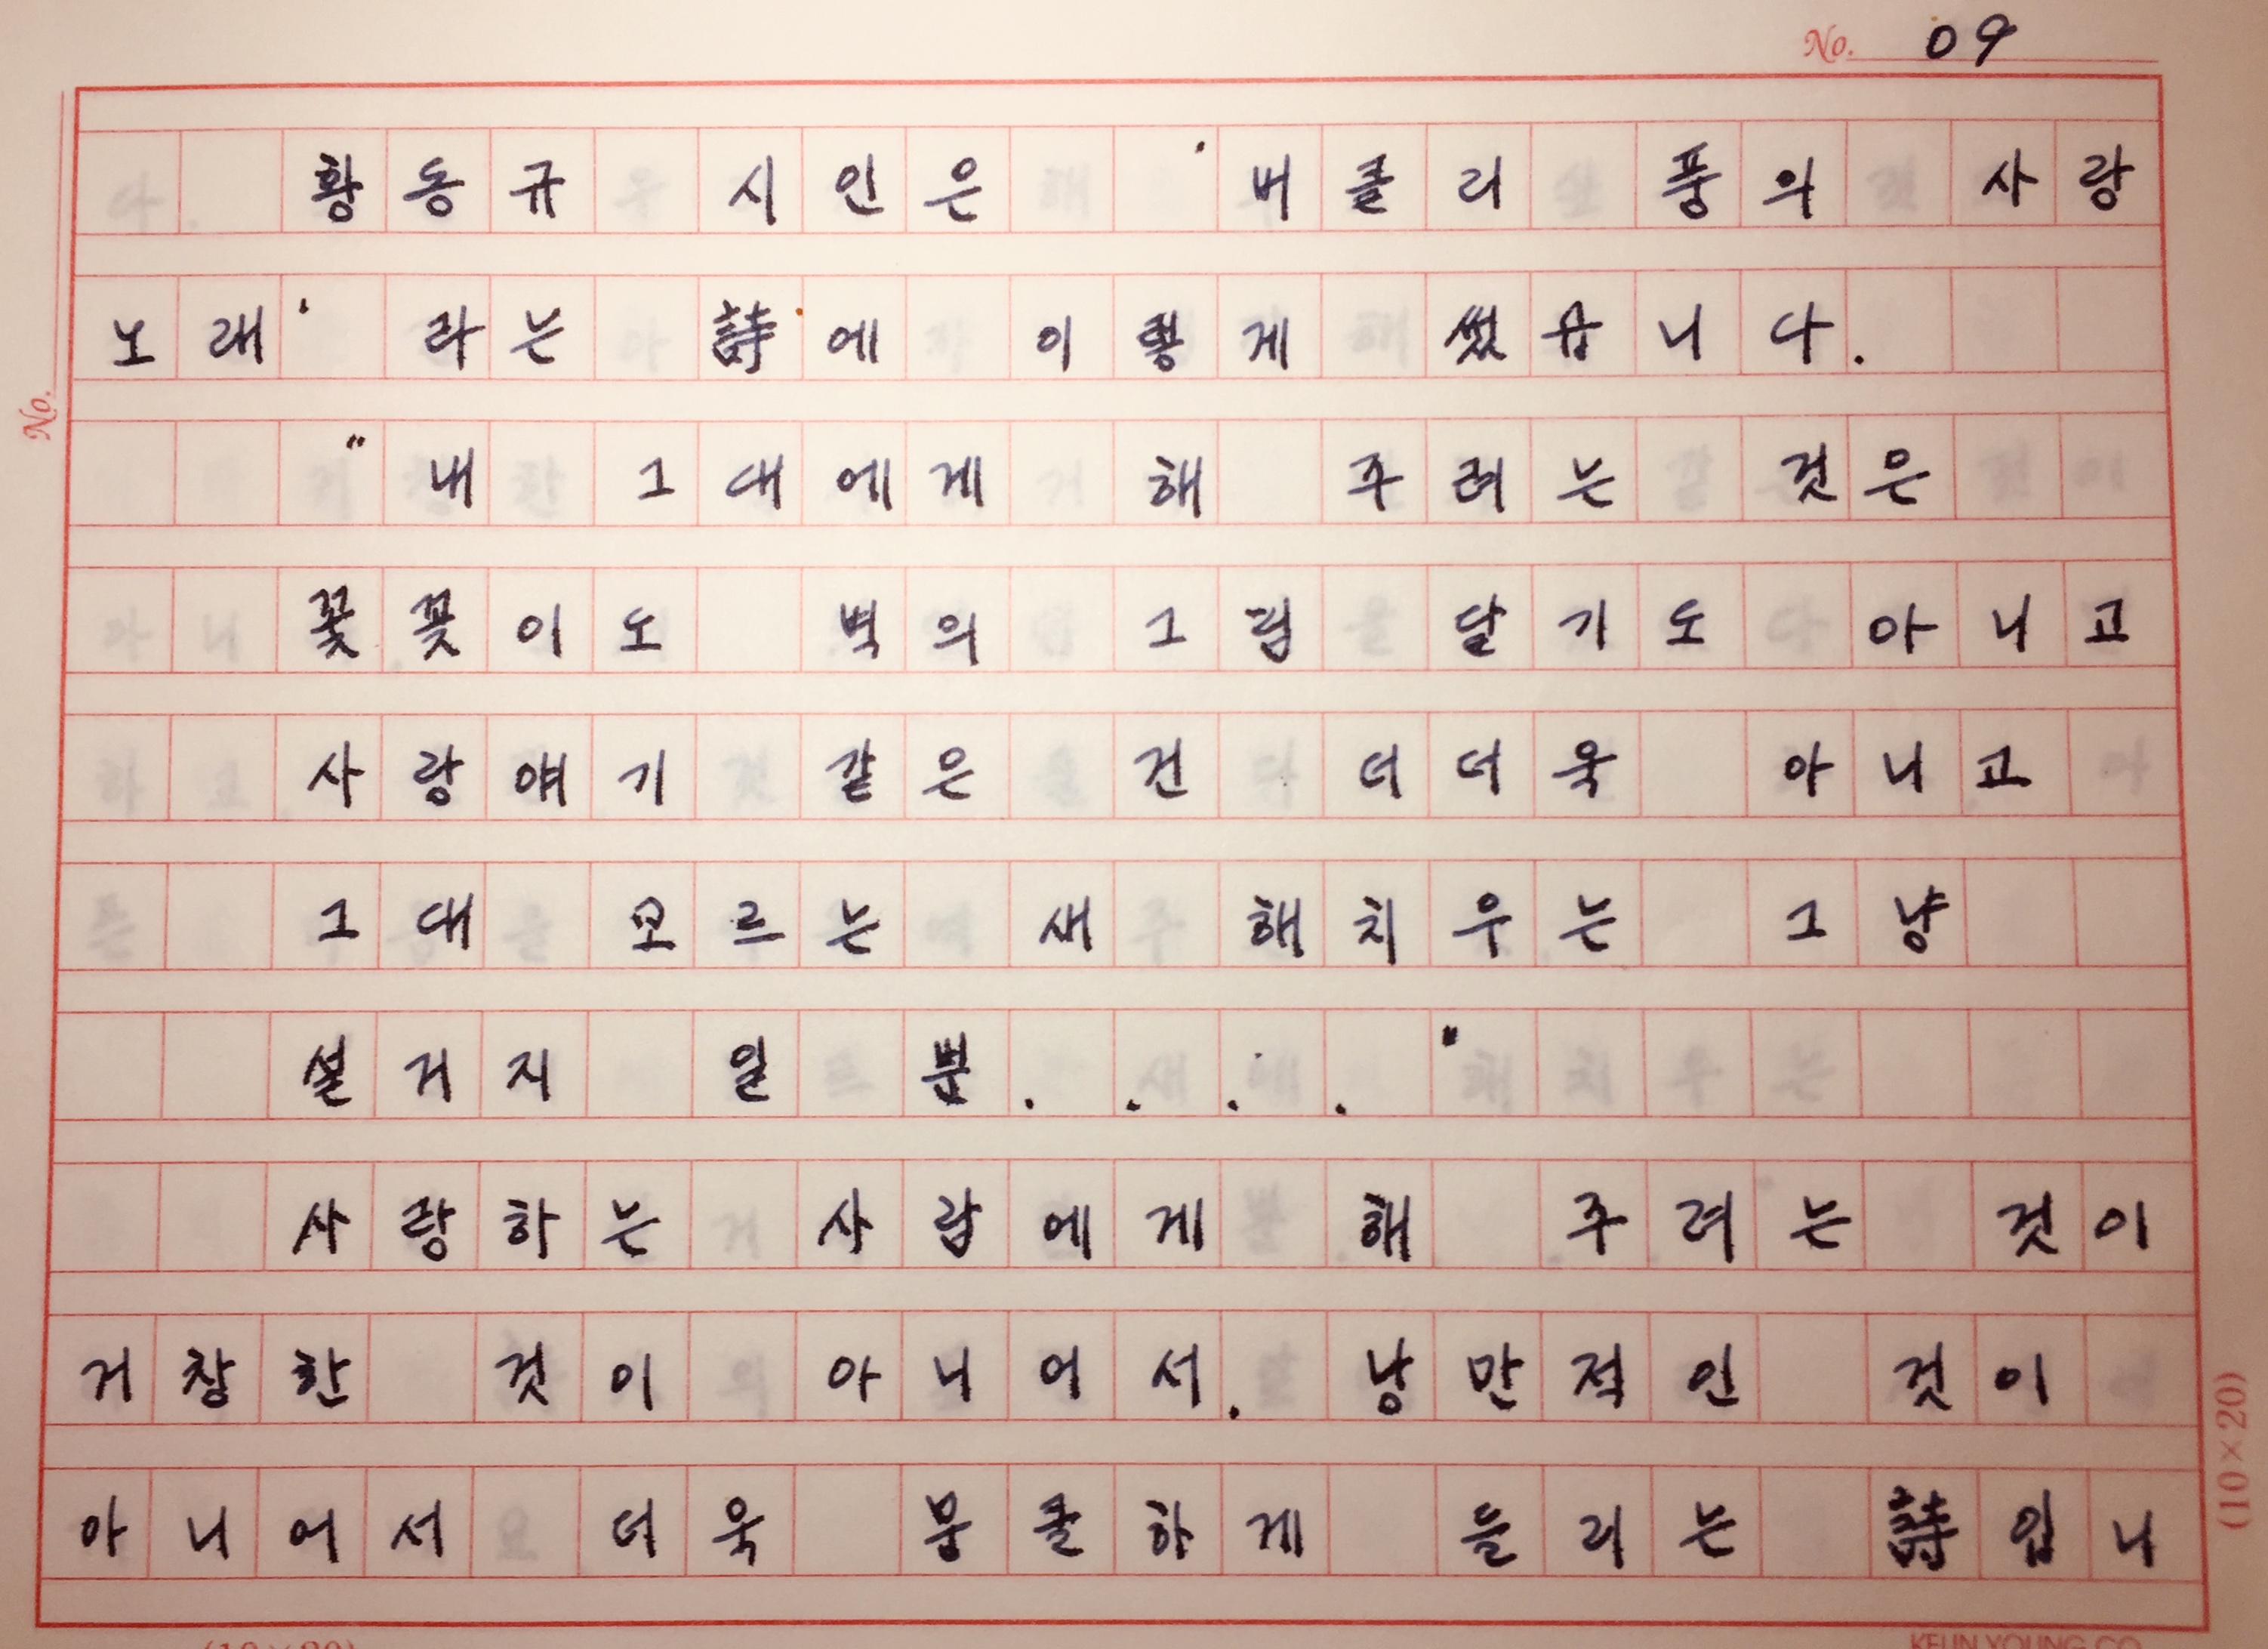 No. 09
황동규 시인은 '버클리 풍의 사랑
노래' 라는 詩에 이렇게 썼습니다.
"내 그대에게 해 주려는 것은
꽃꽂이도 벽의 그림 달기도 아니고
사랑얘기 같은 건 더더욱 아니고
그대 모르는 새 해치우는 그냥
설거지 일 뿐. . . . "
사랑하는 사람에게 해 주려는 것이
거창한 것이 아니어서. 낭만적인 것이
아니어서 더욱 뭉클하게 들리는 詩입니
No.
(10×20)